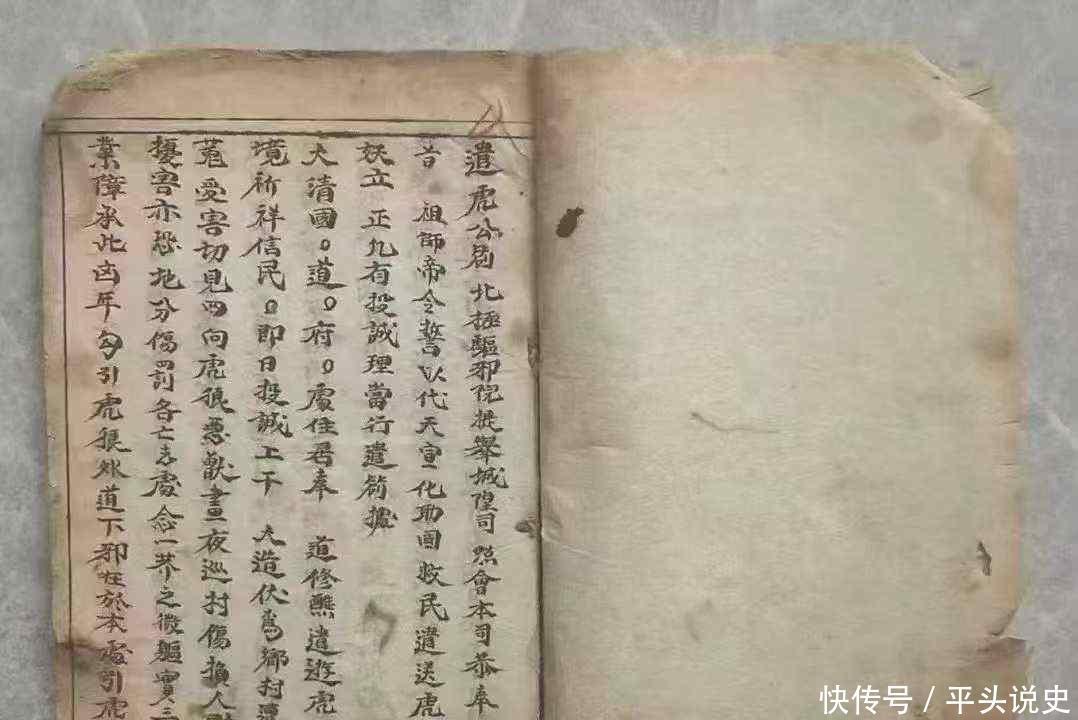 遣虎公劄 北極驅邪院提舉城隍司 照會本司恭奉
昔 祖師帝令誓以代天宣化助國救民遣送虎
妖立 正凡有投誠理當行遣 劄據
大清國。道。府。處住居奉 道修醮遣逰虎
境祈祥信民。即日投誠上干 大造伏爲鄉村遭
受害切見四向虎狼惡獸晝夜巡村傷損人
擾害亦恐地分傷罰各亡去處念一芥之微軀實三
業障承此凶年勾引虎狼外道下邪在於本處引虎
快传号 / 平头说史